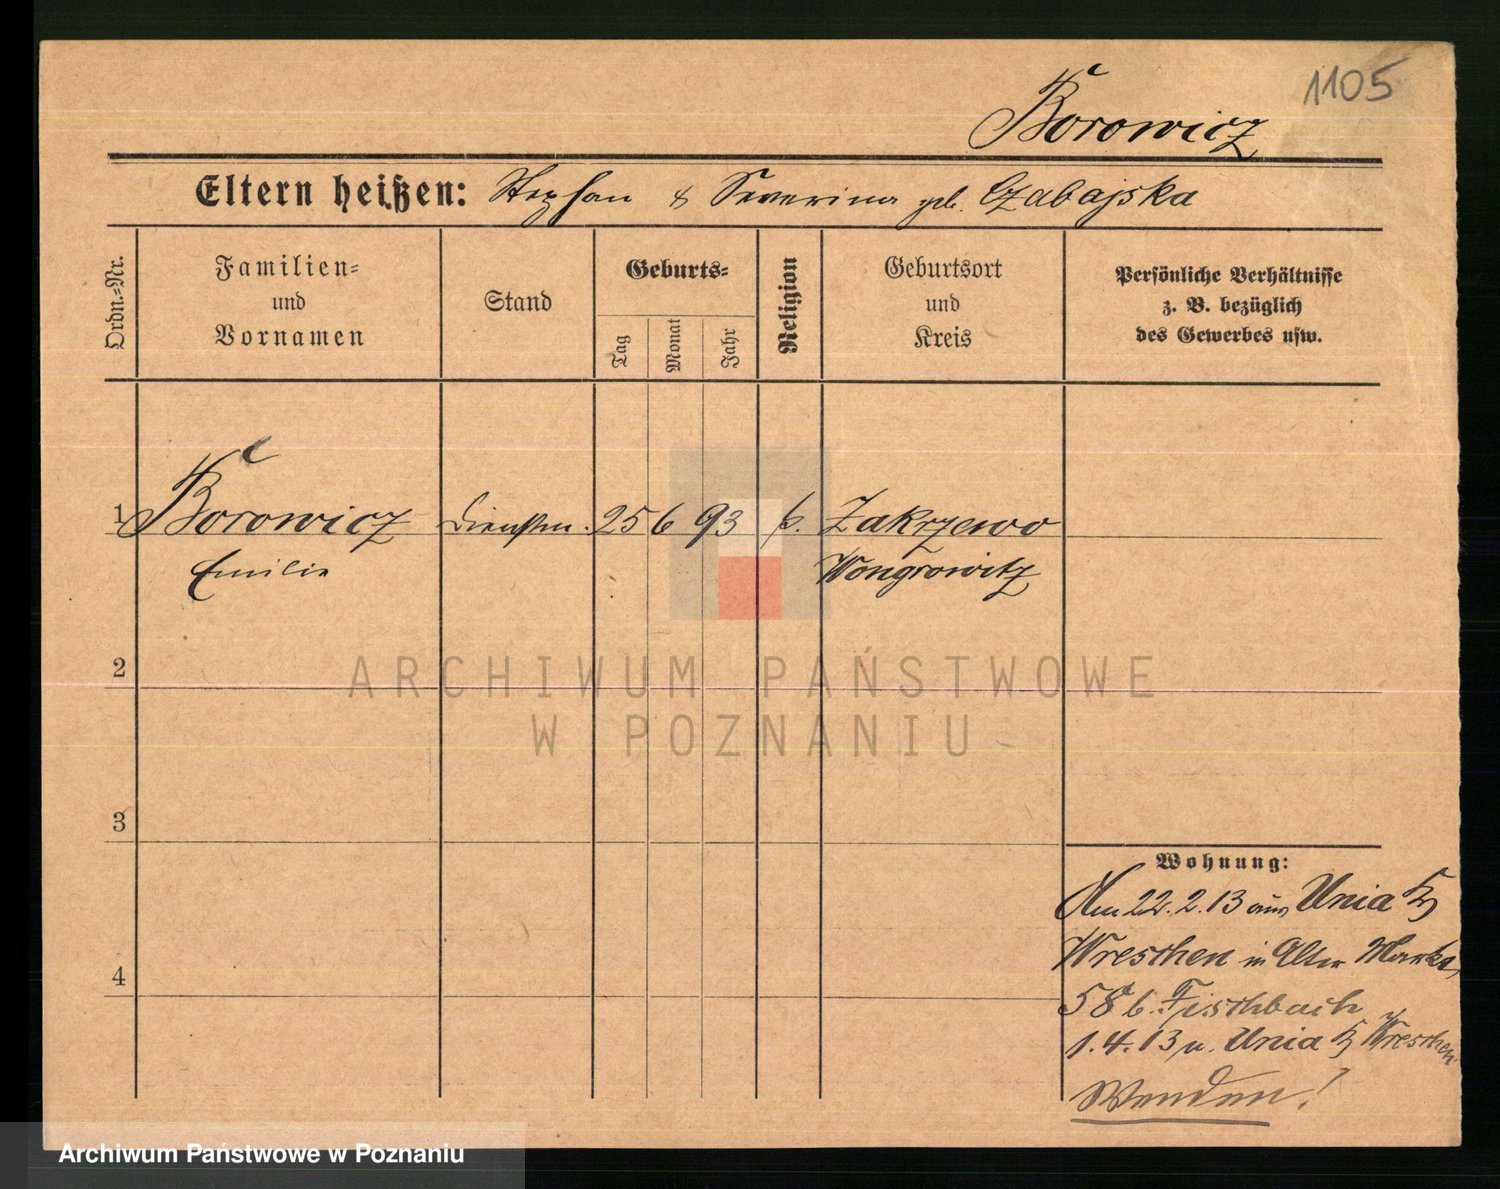 1105
Borowicz
Eltern heißen: Stephan & Severina geb. Czabajska
Ordn.-Nr.
Familien-
und
Vornamen
Stand
Geburts-
Tag
Monat
Jahr
Religion
Geburtsort
und
Kreis
Persönliche Verhältnisse
z. B. bezüglich
des Gewerbes usw.
1 Borowicz Dienstm. 25 6 93 k. Zakrzewo
Emilie Wongrowitz
2
ARCHIWUM PAŃSTWOWE
W POZNANIU
3
4
Wohnung:
Am 22.2.13 aus Unia Kr
Wreschen in Alter Markt
58 b. Fischbach
1.4.13 n. Unia Kr Wreschen
Wenden!
Archiwum Państwowe w Poznaniu